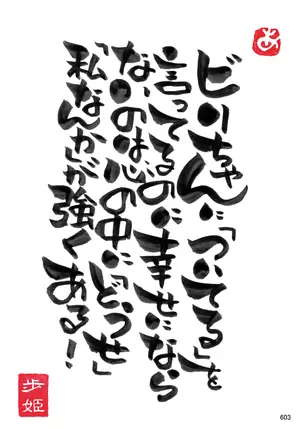 あ
ビリちゃんに「ついてる」を
言ってるのに幸せになら
ないのは心の中に「どうせ」
「私なんか」が強くある!
歩姫
603